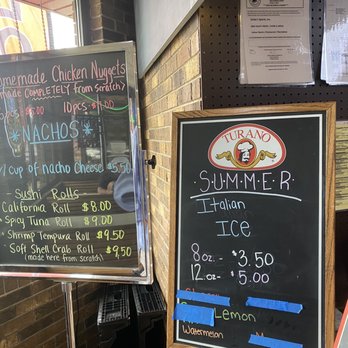 Homemade Chicken Nuggets
made COMPLETELY from scratch)
10 pcs
*NACHOS*
w/ cup of nacho Cheese $5.50
Sushi Rolls
California Roll $8.00
• Spicy Tuna Roll $9.00
• Shrimp Tempura Roll $9.50
• Soft Shell Crab Roll $9.50
(made here from scratch)
TURANO
• S•U•M•M•E•R •
Italian
ICE
8 oz. - $3.50
12 oz. - $5.00
Lemon
Watermelon